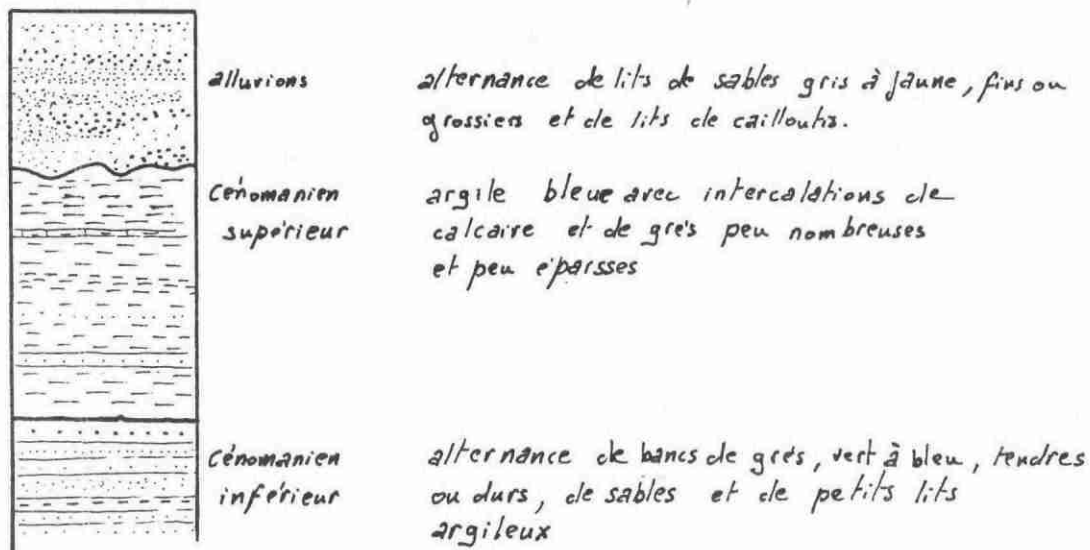 alluvions
alternance de lits de sables gris à jaune, fins ou
grossiers et de lits de cailloutis.
Cénomanien
supérieur
argile bleue avec intercalations de
calcaire et de grés peu nombreuses
et peu éparsses
Cénomanien
inférieur
alternance de bancs de grés, vert à bleu, tendres
ou durs, de sables et de petits lits
argileux